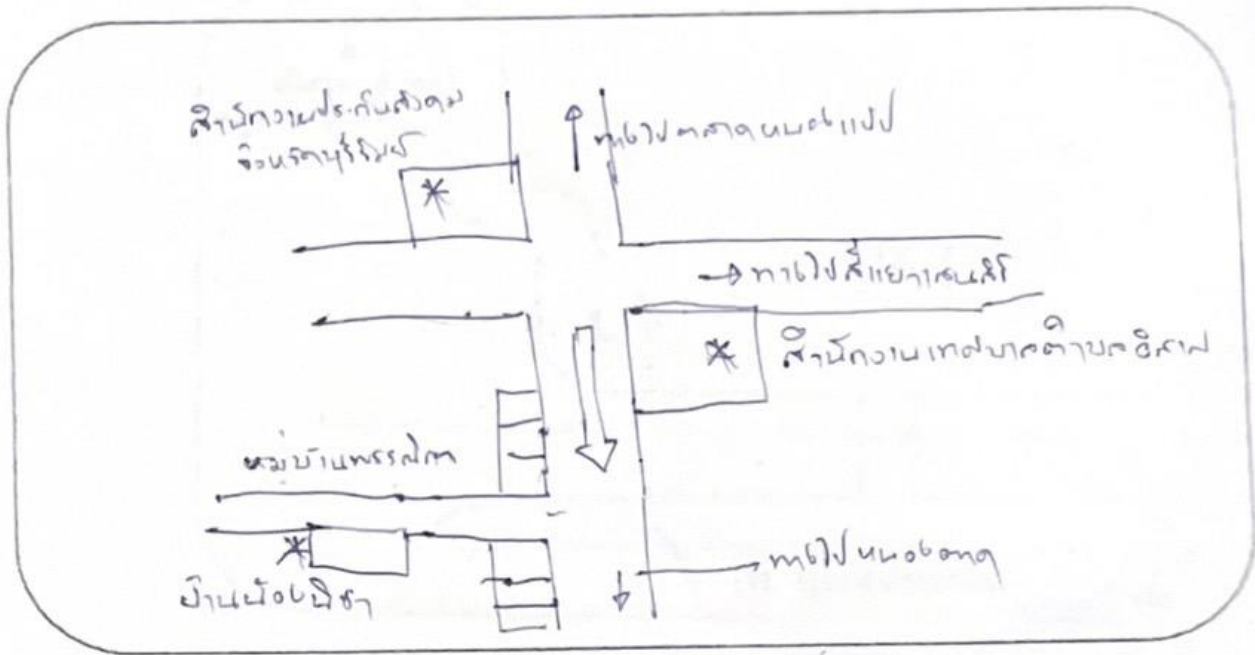 สำนักงานประกันสังคม
จังหวัดบุรีรัมย์
ทางไปตลาดหนองแปป
ทางไปสี่แยกแสนสิริ
สำนักงานเทศบาลตำบลอิสาณ
หมู่บ้านพรรณิภา
ทางไปหนองตาด
บ้านน้องนิชา